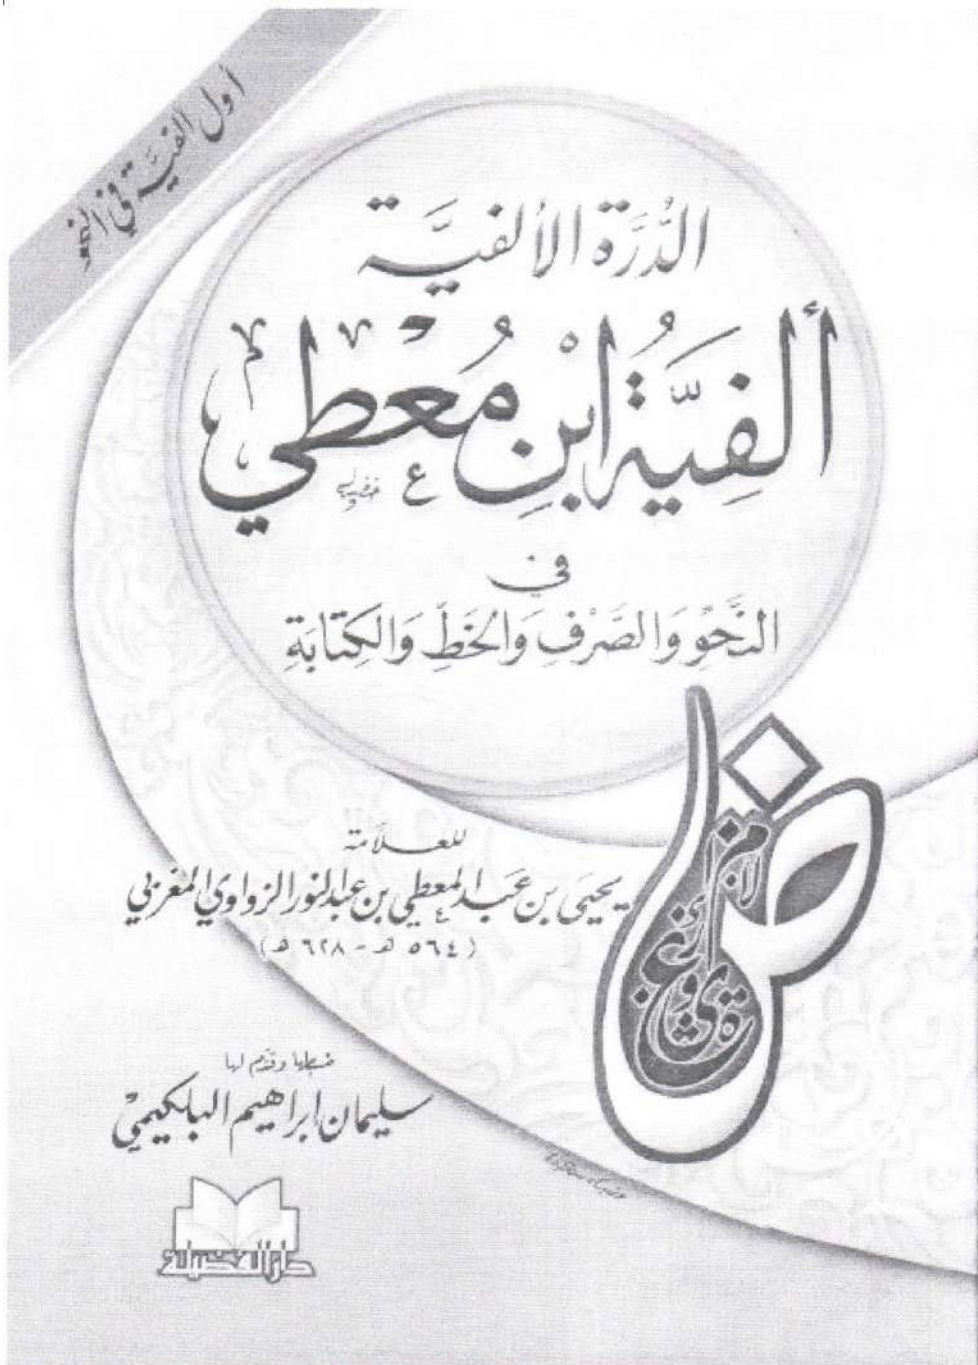 أول ألفية في النحو
الدُّرَّة الألفيَّة
ألفِيَّةُ ابْنِ مُعْطي
في
النَّحْوِ وَالصَّرْفِ وَالخَطِّ وَالكِتَابَةِ
للعلاَّمة
يحيَى بن عبد المعطي بن عبد النور الزواوي المغربي
(٥٦٤ هـ - ٦٢٨ هـ)
ضبطها وقدَّم لها
سليمان إبراهيم البلكيمي
دار الفضيلة